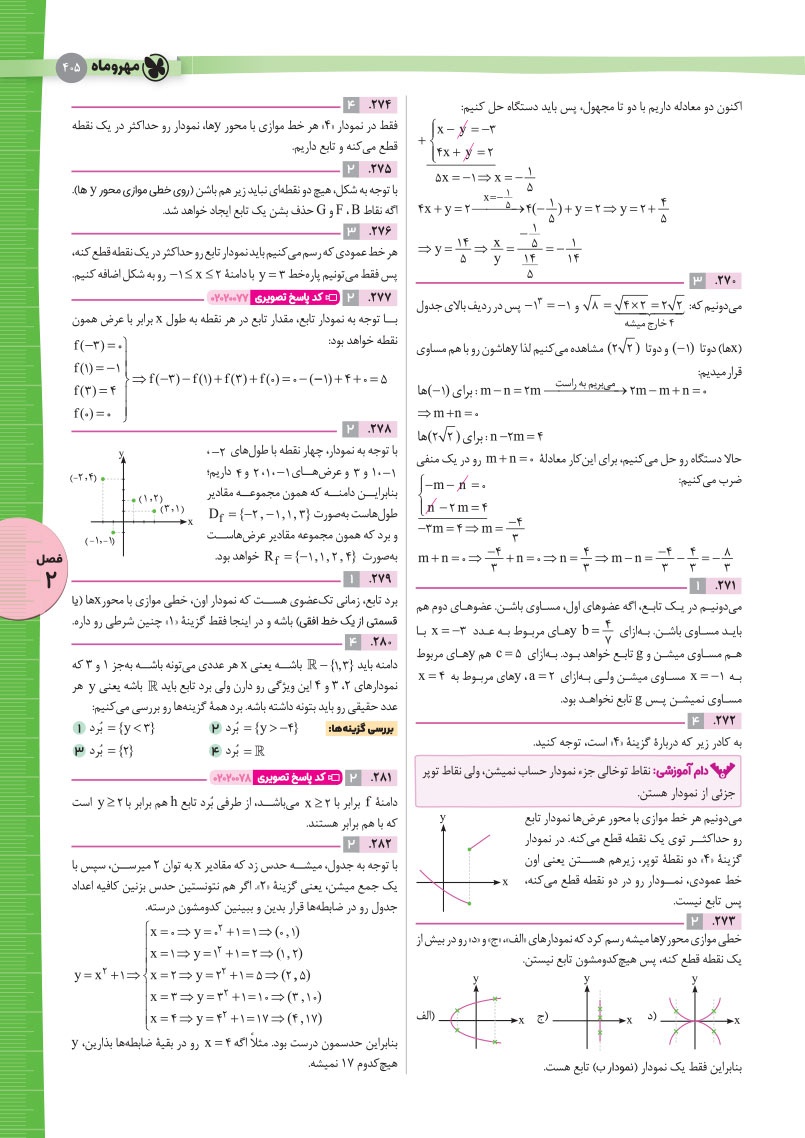 مهروماه
۴۰۵
اکنون دو معادله داریم با دو تا مجهول، پس باید دستگاه حل کنیم:
+ { x − y = −۳
۴x + y = ۲
۵x = −۱ ⇒ x = −۱/۵
۴x + y = ۲ —(x=−۱/۵)→ ۴(−۱/۵) + y = ۲ ⇒ y = ۲ + ۴/۵
⇒ y = ۱۴/۵ ⇒ x/y = (−۱/۵)/(۱۴/۵) = −۱/۱۴
۲۷۰. ۳
می‌دونیم که: √۸ = √۴×۲ = ۲√۲ و −۱³ = −۱ پس در ردیف بالای جدول
۴ خارج میشه
(xها) دوتا (−۱) و دوتا (۲√۲) مشاهده می‌کنیم لذا yهاشون رو با هم مساوی
قرار میدیم:
برای (−۱)ها: m − n = ۲m —می‌بریم به راست→ ۲m − m + n = ۰
⇒ m + n = ۰
برای (۲√۲)ها: n − ۲m = ۴
حالا دستگاه رو حل می‌کنیم، برای این‌کار معادلهٔ m + n = ۰ رو در یک منفی
ضرب می‌کنیم:
{ −m − n = ۰
n − ۲m = ۴
−۳m = ۴ ⇒ m = −۴/۳
m + n = ۰ ⇒ −۴/۳ + n = ۰ ⇒ n = ۴/۳ ⇒ m − n = −۴/۳ − ۴/۳ = −۸/۳
۲۷۱. ۱
می‌دونیم در یک تابع، اگه عضوهای اول، مساوی باشن. عضوهای دوم هم
باید مساوی باشن. به‌ازای b = ۴/۷ yهای مربوط به عدد x = −۳ با
هم مساوی میشن و g تابع خواهد بود. به‌ازای c = ۵ هم yهای مربوط
به x = −۱ مساوی میشن ولی به‌ازای a = ۲، yهای مربوط به x = ۴
مساوی نمیشن پس g تابع نخواهد بود.
۲۷۲. ۴
به کادر زیر که دربارهٔ گزینهٔ «۴» است، توجه کنید.
دام آموزشی: نقاط توخالی جزء نمودار حساب نمیشن، ولی نقاط توپر
جزئی از نمودار هستن.
می‌دونیم هر خط موازی با محور عرض‌ها نمودار تابع
رو حداکثر توی یک نقطه قطع می‌کنه. در نمودار
گزینهٔ «۴» دو نقطهٔ توپر، زیرهم هستن یعنی اون
خط عمودی، نمودار رو در دو نقطه قطع می‌کنه،
پس تابع نیست.
y
x
۲۷۳. ۲
خطی موازی محور yها میشه رسم کرد که نمودارهای «الف»، «ج» و «د» رو در بیش از
یک نقطه قطع کنه، پس هیچ‌کدومشون تابع نیستن.
الف) y x
ج) y x
د) y x
بنابراین فقط یک نمودار (نمودار ب) تابع هست.
۲۷۴. ۴
فقط در نمودار «۴» هر خط موازی با محور yها، نمودار رو حداکثر در یک نقطه
قطع می‌کنه و تابع داریم.
۲۷۵. ۲
با توجه به شکل، هیچ دو نقطه‌ای نباید زیر هم باشن (روی خطی موازی محور y ها).
اگه نقاط F ، B و G حذف بشن یک تابع ایجاد خواهد شد.
۲۷۶. ۳
هر خط عمودی که رسم می‌کنیم باید نمودار تابع رو حداکثر در یک نقطه قطع کنه،
پس فقط می‌تونیم پاره‌خط y = ۳ با دامنهٔ −۱ ≤ x ≤ ۲ رو به شکل اضافه کنیم.
۲۷۷. ۲ کد پاسخ تصویری ۰۲۰۲۰۰۷۷
با توجه به نمودار تابع، مقدار تابع در هر نقطه به طول x برابر با عرض همون
نقطه خواهد بود:
f(−۳) = ۰
f(۱) = −۱
f(۳) = ۴
f(۰) = ۰
} ⇒ f(−۳) − f(۱) + f(۳) + f(۰) = ۰ − (−۱) + ۴ + ۰ = ۵
۲۷۸. ۲
با توجه به نمودار، چهار نقطه با طول‌های −۲،
−۱، ۱ و ۳ و عرض‌های −۱، ۱، ۲ و ۴ داریم؛
بنابراین دامنه که همون مجموعه مقادیر
طول‌هاست به‌صورت D_f = {−۲, −۱, ۱, ۳}
و برد که همون مجموعه مقادیر عرض‌هاست
به‌صورت R_f = {−۱, ۱, ۲, ۴} خواهد بود.
y
(−۲,۴)
(۱,۲)
(۳,۱)
x
(−۱,−۱)
۲۷۹. ۱
برد تابع، زمانی تک‌عضوی هست که نمودار اون، خطی موازی با محور xها (یا
قسمتی از یک خط افقی) باشه و در اینجا فقط گزینهٔ «۱» چنین شرطی رو داره.
۲۸۰. ۴
دامنه باید ℝ − {۱,۳} باشه یعنی x هر عددی می‌تونه باشه به‌جز ۱ و ۳ که
نمودارهای ۲، ۳ و ۴ این ویژگی رو دارن ولی برد تابع باید ℝ باشه یعنی y هر
عدد حقیقی رو باید بتونه داشته باشه. برد همهٔ گزینه‌ها رو بررسی می‌کنیم:
بررسی گزینه‌ها: ۲ بُرد = {y > −۴} ۱ بُرد = {y < ۳}
۴ بُرد = ℝ ۳ بُرد = {۲}
۲۸۱. ۲ کد پاسخ تصویری ۰۲۰۲۰۰۷۸
دامنهٔ f برابر با x ≥ ۲ می‌باشد، از طرفی بُرد تابع h هم برابر با y ≥ ۲ است
که با هم برابر هستند.
۲۸۲. ۲
با توجه به جدول، میشه حدس زد که مقادیر x به توان ۲ میرسن، سپس با
یک جمع میشن، یعنی گزینهٔ «۲». اگر هم نتونستین حدس بزنین کافیه اعداد
جدول رو در ضابطه‌ها قرار بدین و ببینین کدومشون درسته.
y = x² + ۱ ⇒ { x = ۰ ⇒ y = ۰² + ۱ = ۱ ⇒ (۰,۱)
x = ۱ ⇒ y = ۱² + ۱ = ۲ ⇒ (۱,۲)
x = ۲ ⇒ y = ۲² + ۱ = ۵ ⇒ (۲,۵)
x = ۳ ⇒ y = ۳² + ۱ = ۱۰ ⇒ (۳,۱۰)
x = ۴ ⇒ y = ۴² + ۱ = ۱۷ ⇒ (۴,۱۷)
بنابراین حدسمون درست بود. مثلاً اگه x = ۴ رو در بقیهٔ ضابطه‌ها بذارین، y
هیچ‌کدوم ۱۷ نمیشه.
فصل
۲